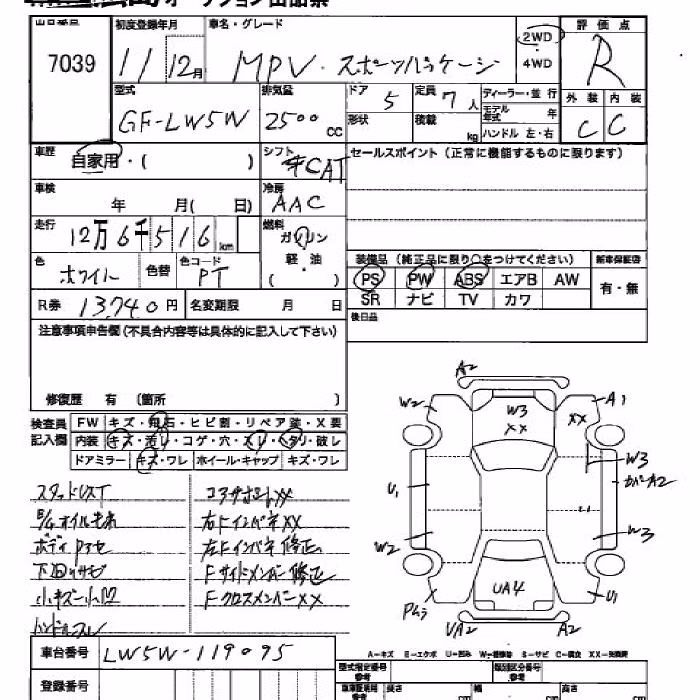 オークション出品票
出品番号 7039
初度登録年月 11 / 12月
車名・グレード MPV・スポーツパッケージ
2WD
4WD
評価点 R
型式 GF-LW5W
排気量 2500 CC
ドア 5
形状
定員 7人
積載 kg
ディーラー・並行
モデル年式 年
ハンドル 左・右
外装 C
内装 C
車歴 自家用・( )
シフト CAT
セールスポイント(正常に機能するものに限ります)
車検 年 月( 日)
冷房 AAC
走行 12万6千516 km
燃料 ガソリン
軽・油
( )
色 ホワイト
色替
色コード PT
装備品(純正品に限り○をつけてください)
新車保証書
PS PW ABS エアB AW
有・無
SR ナビ TV カワ
R券 13,740円
名変期限 月 日
後日品
注意事項申告欄(不具合内容等は具体的に記入して下さい)
修復歴 有 〔箇所 〕
検査員記入欄
FW キズ・飛石・ヒビ割・リペア跡・X要
内装 キズ・汚レ・コゲ・穴・スレ・ヘタリ・破レ
ドアミラー キズ・ワレ ホイール・キャップ キズ・ワレ
コアサポートXX
右FインパネXX
ボディ
左Fインパネ修正
下回りサビ
Fサイドメンバー修正
小キズ小凹
FクロスメンバーXX
ハンドルスレ
A2
W2
W3
XX
XX
A1
W3
カバーA2
U1
W2
W3
UA4
Pムラ
U1
UA2
A2
A-キズ E-エクボ U-凹み W-補修跡 S-サビ C-腐食 XX-交換済
車台番号 LW5W-119095
型式指定番号 参考
類別区分番号 参考
登録番号
長さ cm
幅 cm
高さ cm